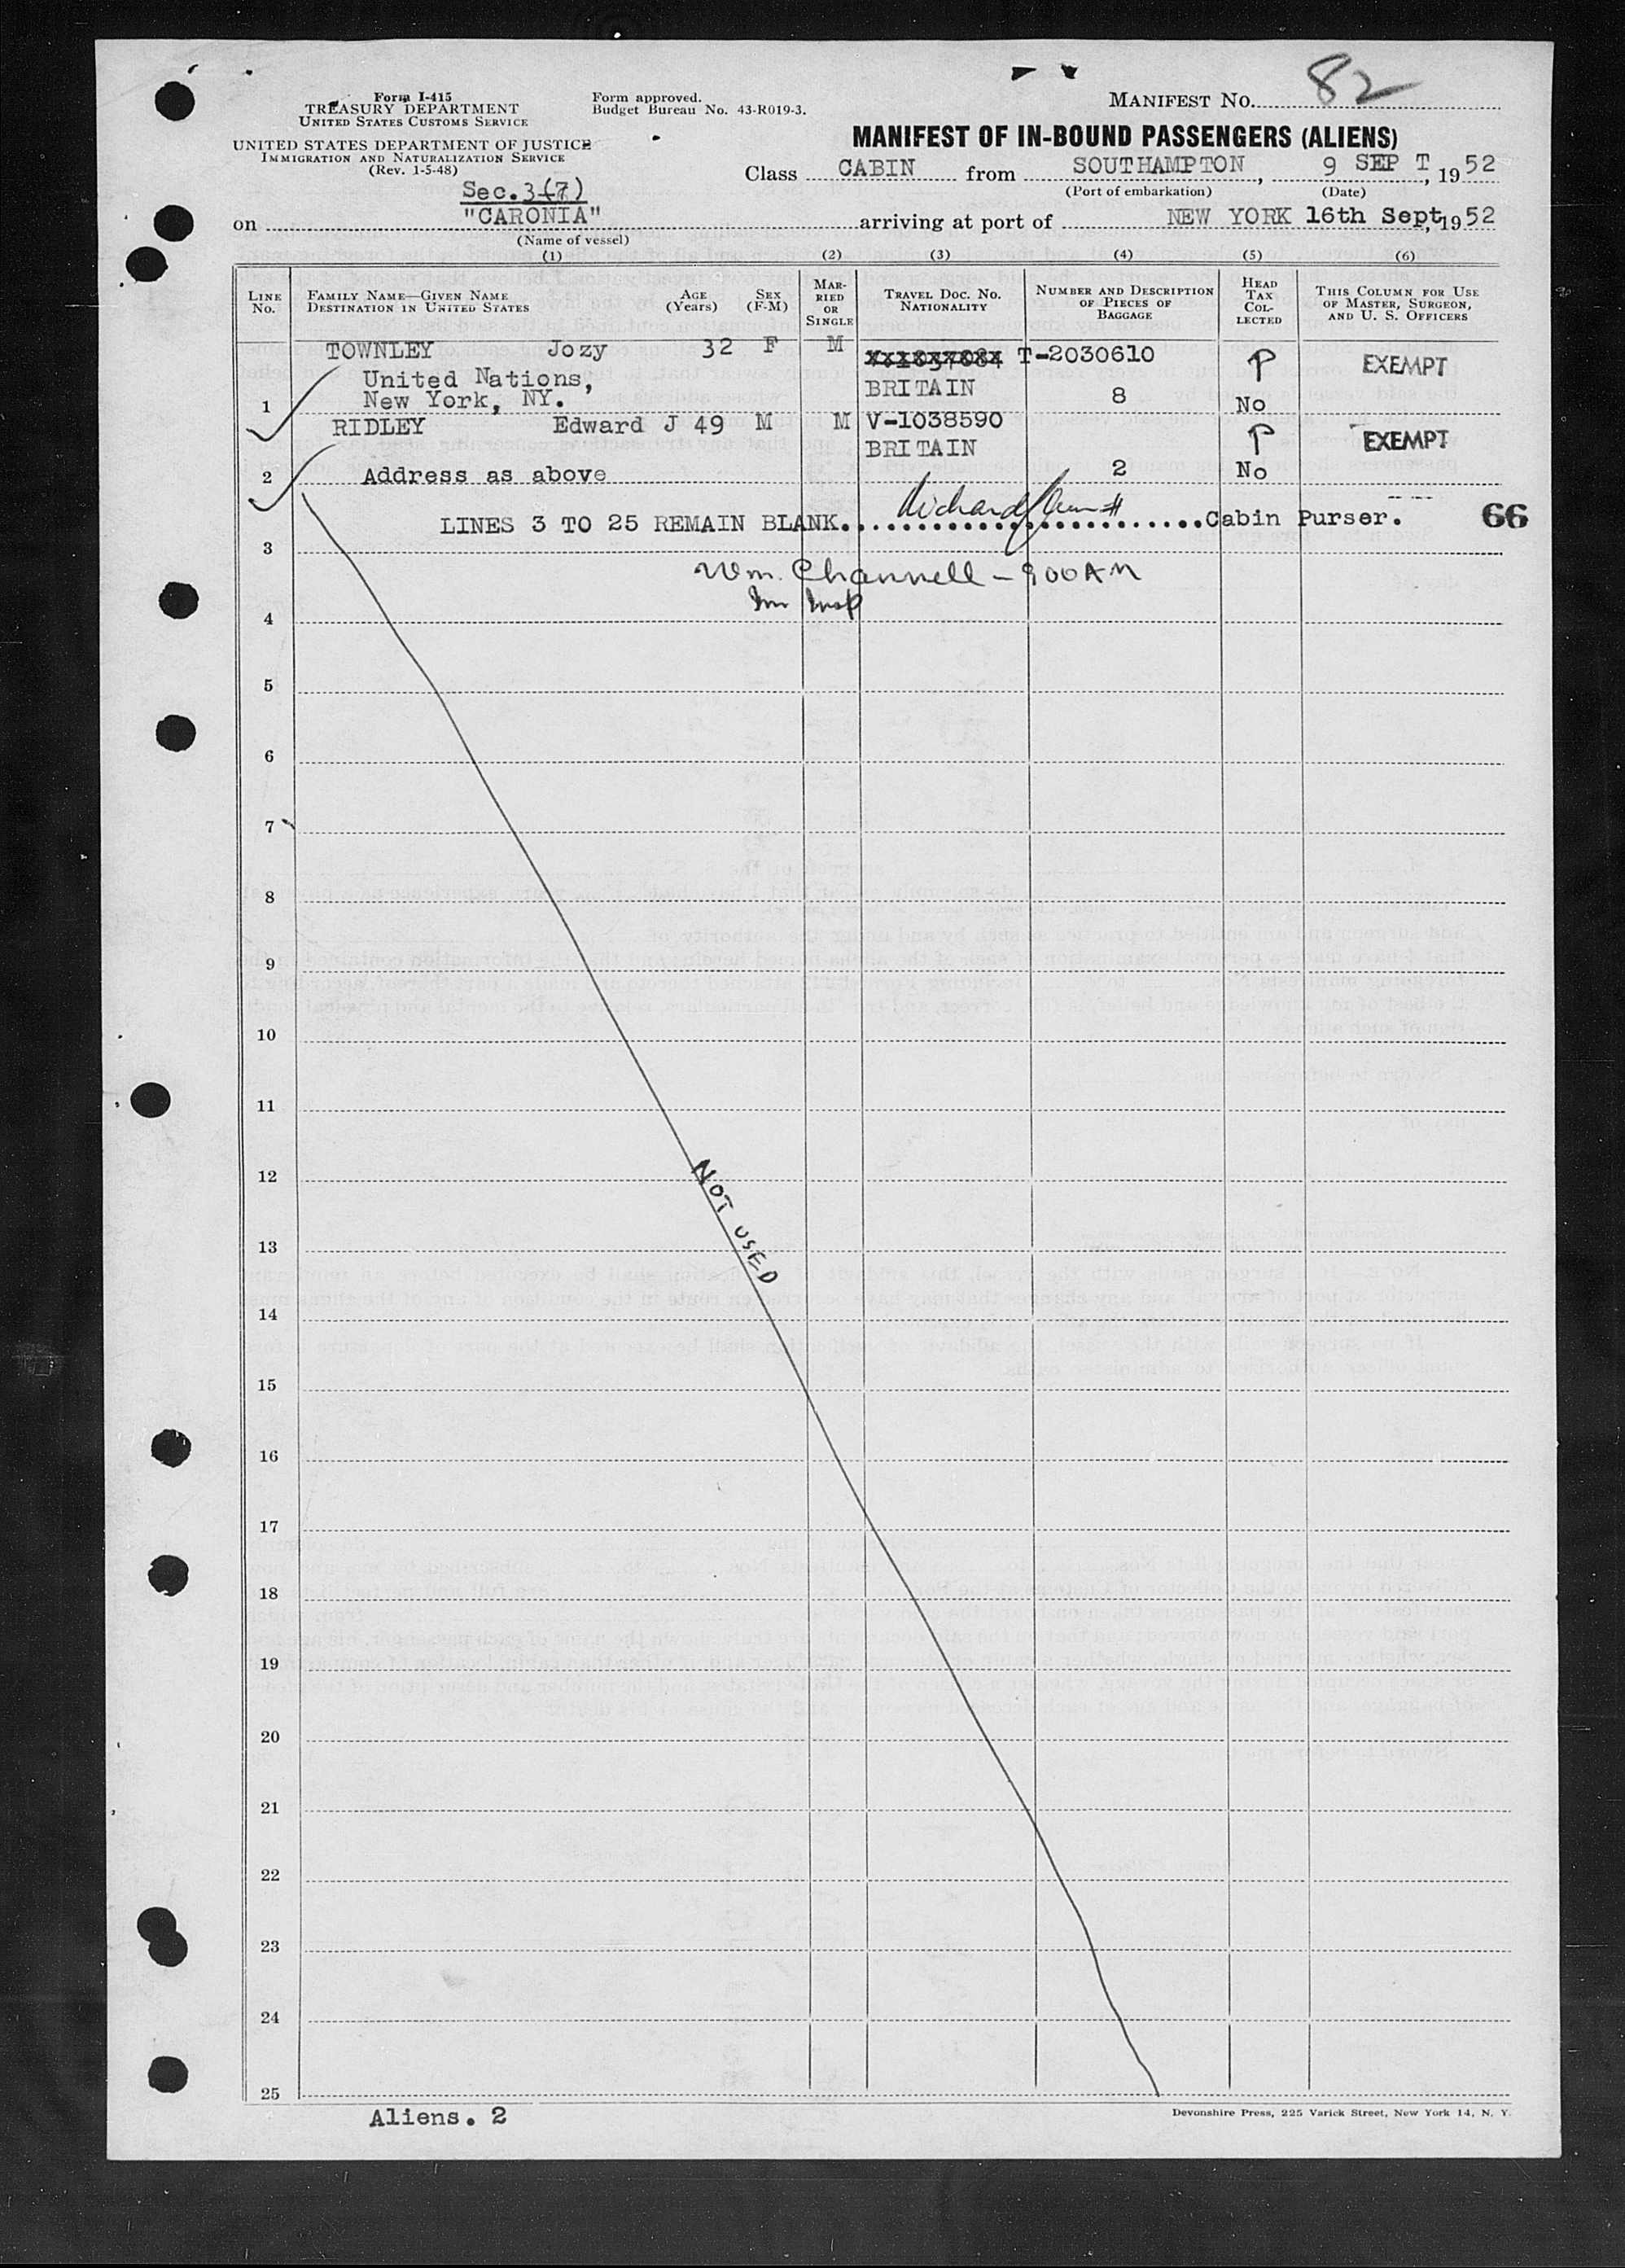 Form I-415
TREASURY DEPARTMENT
UNITED STATES CUSTOMS SERVICE
UNITED STATES DEPARTMENT OF JUSTICE
IMMIGRATION AND NATURALIZATION SERVICE
(Rev. 1-5-48)
Form approved.
Budget Bureau No. 43-R019-3.
MANIFEST NO. 82
MANIFEST OF IN-BOUND PASSENGERS (ALIENS)
Class CABIN from SOUTHAMPTON, 9 SEP T, 1952
(Port of embarkation) (Date)
Sec. 3(7)
on "CARONIA" arriving at port of NEW YORK 16th Sept, 1952
(Name of vessel)
(1) (2) (3) (4) (5) (6)
LINE No. FAMILY NAME—GIVEN NAME DESTINATION IN UNITED STATES AGE (Years) SEX (F-M) MARRIED OR SINGLE TRAVEL DOC. NO. NATIONALITY NUMBER AND DESCRIPTION OF PIECES OF BAGGAGE HEAD TAX COLLECTED THIS COLUMN FOR USE OF MASTER, SURGEON, AND U. S. OFFICERS
TOWNLEY Jozy 32 F M T-2030610 P EXEMPT
United Nations, BRITAIN
1 New York, NY. 8 No
RIDLEY Edward J 49 M M V-1038590 P EXEMPT
BRITAIN
2 Address as above 2 No
LINES 3 TO 25 REMAIN BLANK. Richard Cabin Purser. 66
3
Wm. Channell - 900 AM
Im Insp
4
5
6
7
8
9
10
11
12
NOT USED
13
14
15
16
17
18
19
20
21
22
23
24
25
Aliens. 2
Devonshire Press, 225 Varick Street, New York 14, N. Y.